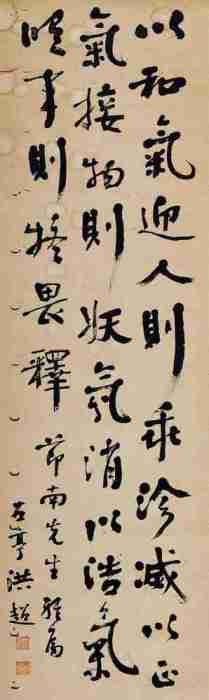 以和氣迎人則乖沴滅以正
氣接物則妖氛消以浩氣
臨事則疑畏釋 節南先生雅屬
洪